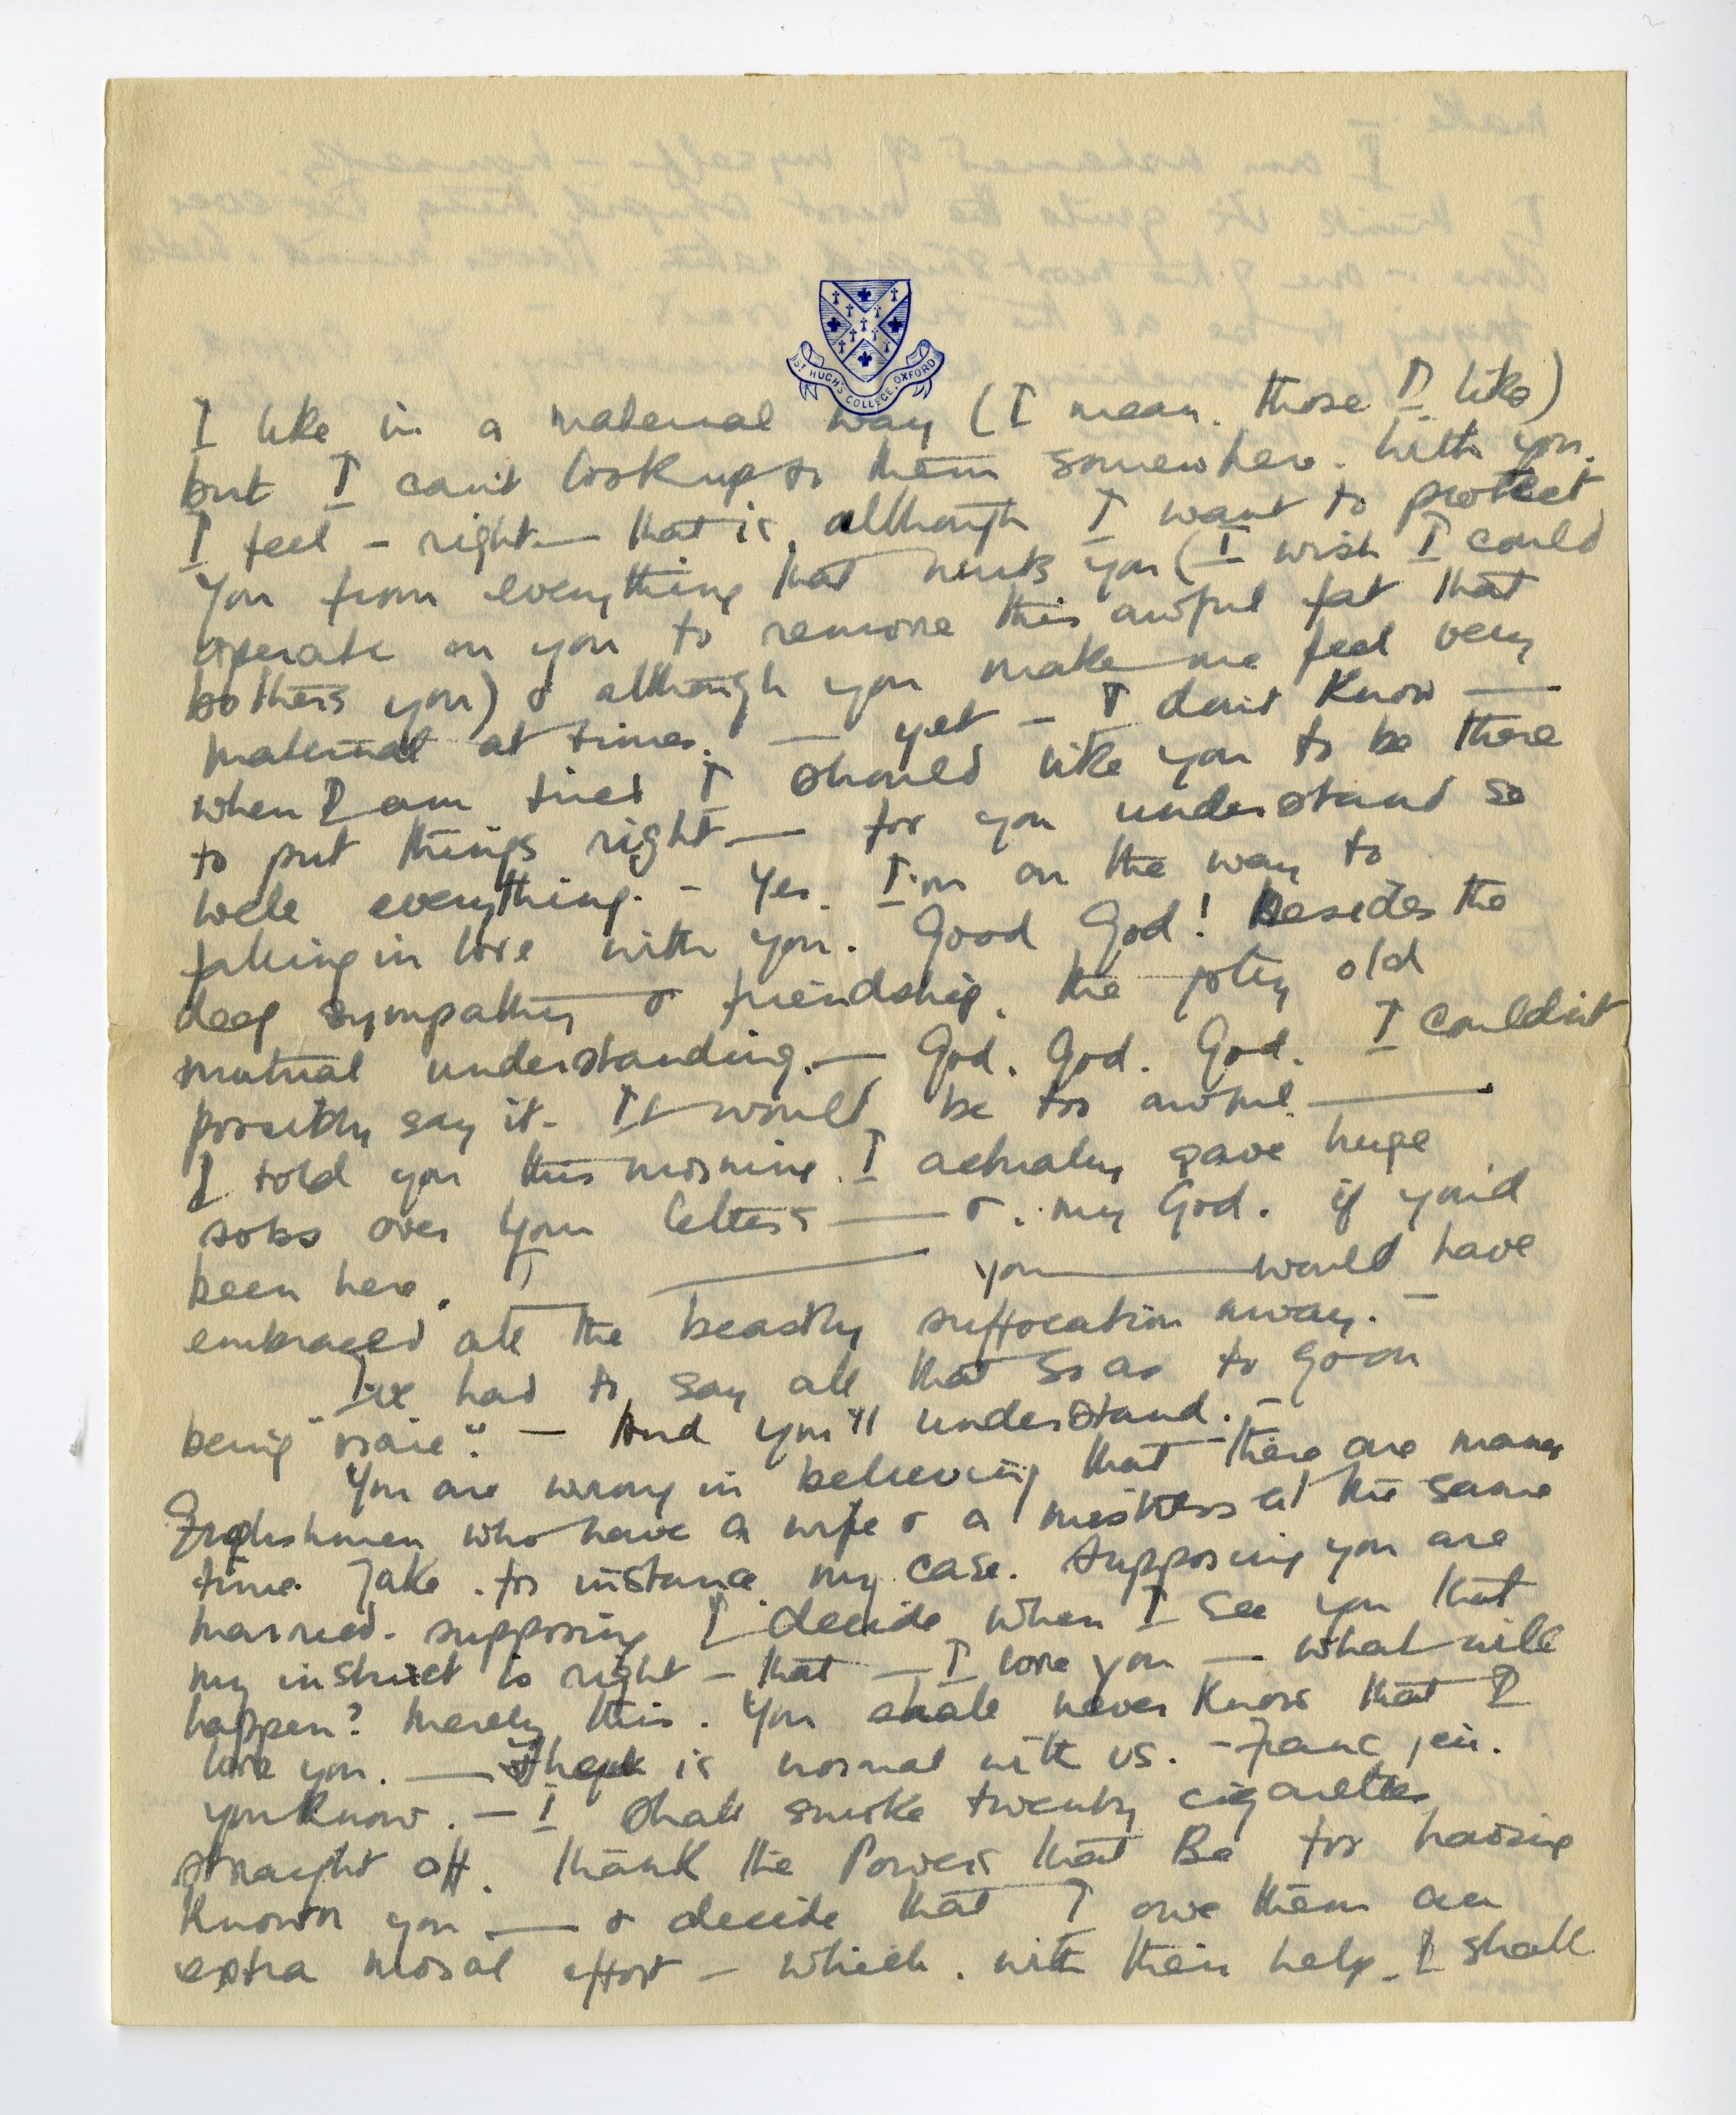 ST HUGH'S COLLEGE, OXFORD
I like in a maternal way (I mean, those I like)
but I can't look up to them somewhere. With you,
I feel – right — that is, although I want to protect
you from everything that hurts you (I wish I could
operate on you to remove this awful fat that
bothers you) & although you make me feel very
maternal at times. — yet – I don't know —
when I am tired I should like you to be there
to put things right — for you understand so
well everything. – Yes. I'm on the way to
falling in love with you. Good God! Besides the
deep sympathy & friendship, the jolly old
mutual understanding. — God. God. God. I couldn't
possibly say it. It would be too awful. —
I told you this morning I actually gave huge
sobs over your letters — & my God. if you'd
been here. — you — would have
embraced all the beastly suffocation away. –
I've had to say all that so as to go on
being "vraie". – And you'll understand. –
You are wrong in believing that there are many
Englishmen who have a wife & a mistress at the same
time. Take for instance my case. Supposing you are
married. supposing I decide when I see you that
my instinct is right – that — I love you — what will
happen? Merely this. You shall never know that I
love you. — is normal with us. – Franc jeu.
you know. – I shall smoke twenty cigarettes
straight off, thank the Powers that Be for having
known you — & decide that I owe them an
extra moral effort – which, with their help, I shall